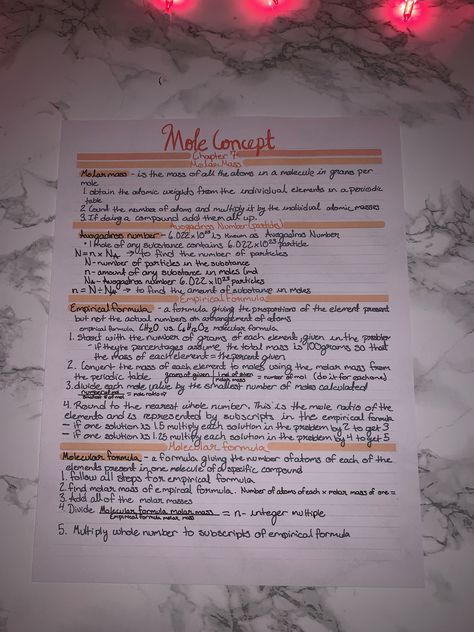 Mole Concept
Chapter 7
Molar Mass
Molar mass - is the mass of all the atoms in a molecule in grams per
mole
1. obtain the atomic weights from the individual elements in a periodic
table
2. Count the number of atoms and multiply it by the individual atomic masses
3. If doing a compound add them all up.
Avogadros Number (particles)
Avogadros number - 6.022 x 10²³ is known as Avogadros Number
• 1 mole of any substance contains 6.022 x 10²³ particle
N = n × NA → to find the number of particles
N - number of particles in the substance
n - amount of any substance in moles
NA - Avogadros number 6.022 x 10²³ particles
n = N ÷ NA → to find the amount of substance in moles
Empirical formula
Empirical formula - a formula giving the proportions of the element present
but not the actual numbers or arrangement of atoms
empirical formula CH₂O vs. C₆H₁₂O₆ molecular formula
1. Start with the number of grams of each element, given in the problem
- if they're percentages assume the total mass is 100 grams so that
the mass of each element = the percent given
2. Convert the mass of each element to moles using the molar mass from
the periodic table. grams of given | 1 mol of given = number of mol (do is for each one)
molar mass
3. divide each mole value by the smallest number of moles calculated
= mole ratio
4. Round to the nearest whole number. This is the mole ratio of the
elements and is represented by subscripts in the empirical formula
- if one solution is 1.5 multiply each solution in the problem by 2 to get 3
- if one solution is 1.25 multiply each solution in the problem by 4 to get 5
Molecular formula
Molecular formula - a formula giving the number of atoms of each of the
elements present in one molecule of a specific compound
1. follow all steps for empirical formula
2. find molar mass of empirical formula. Number of atoms of each x molar mass of one =
3. Add all of the molar masses
4. Divide Molecular formula molar mass = n - integer multiple
Empirical formula molar mass
5. Multiply whole number to subscripts of empirical formula